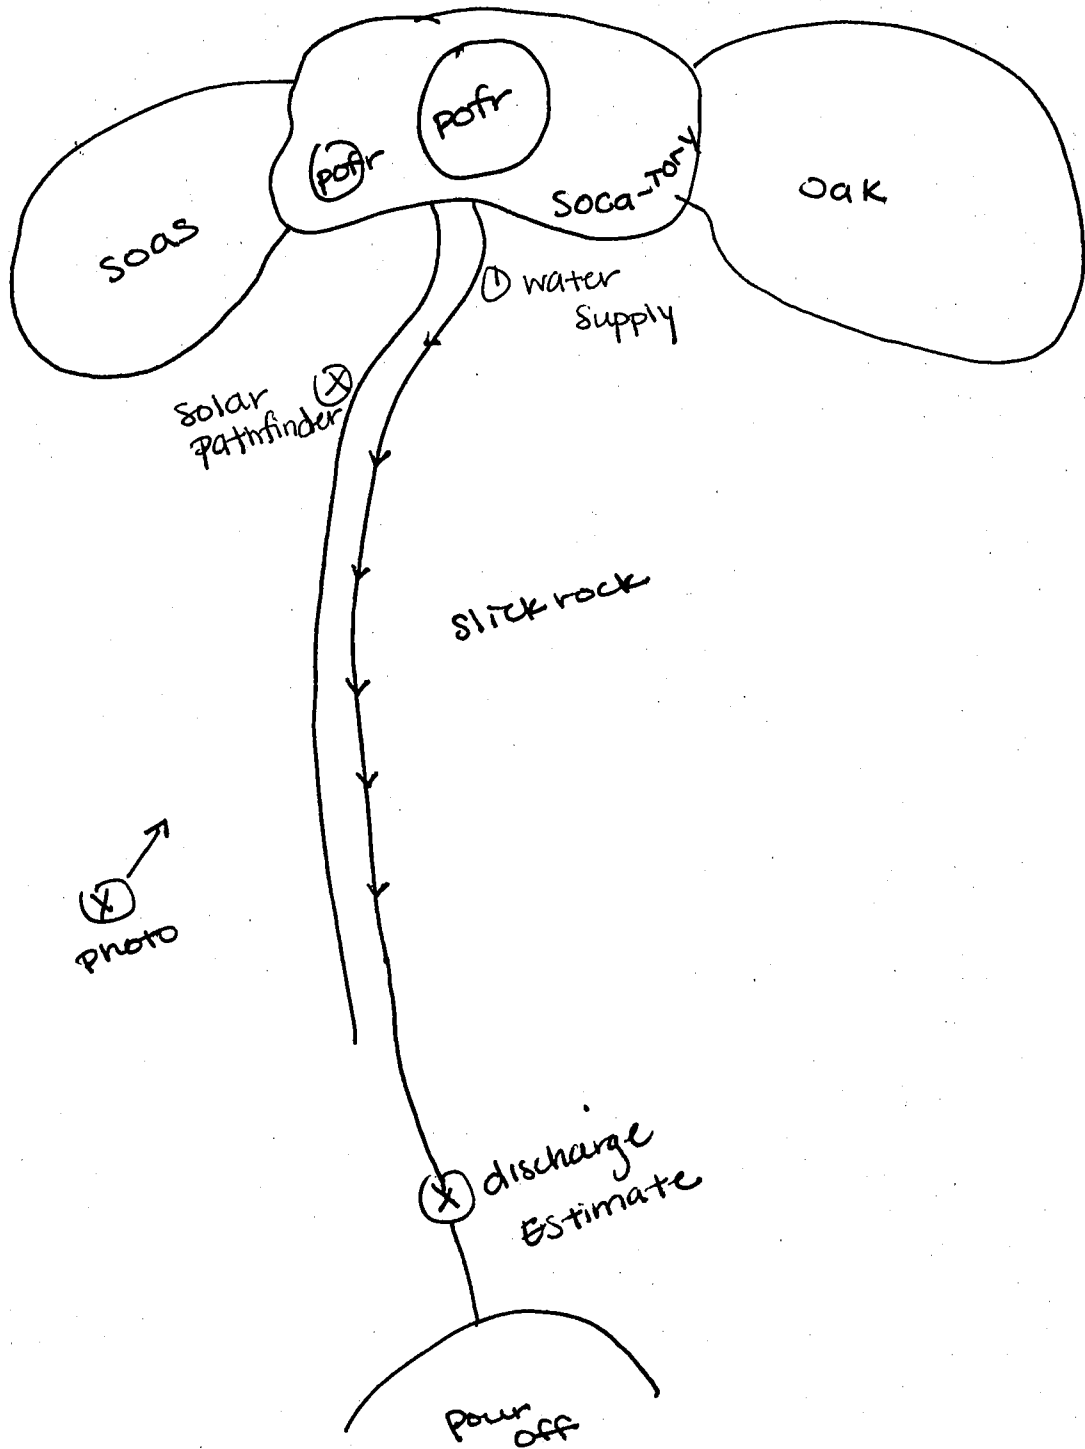 pofr
pofr
Soca-Tory
oak
soas
① water
supply
X
Solar
Pathfinder
slickrock
X
photo
X
discharge
Estimate
pour
off